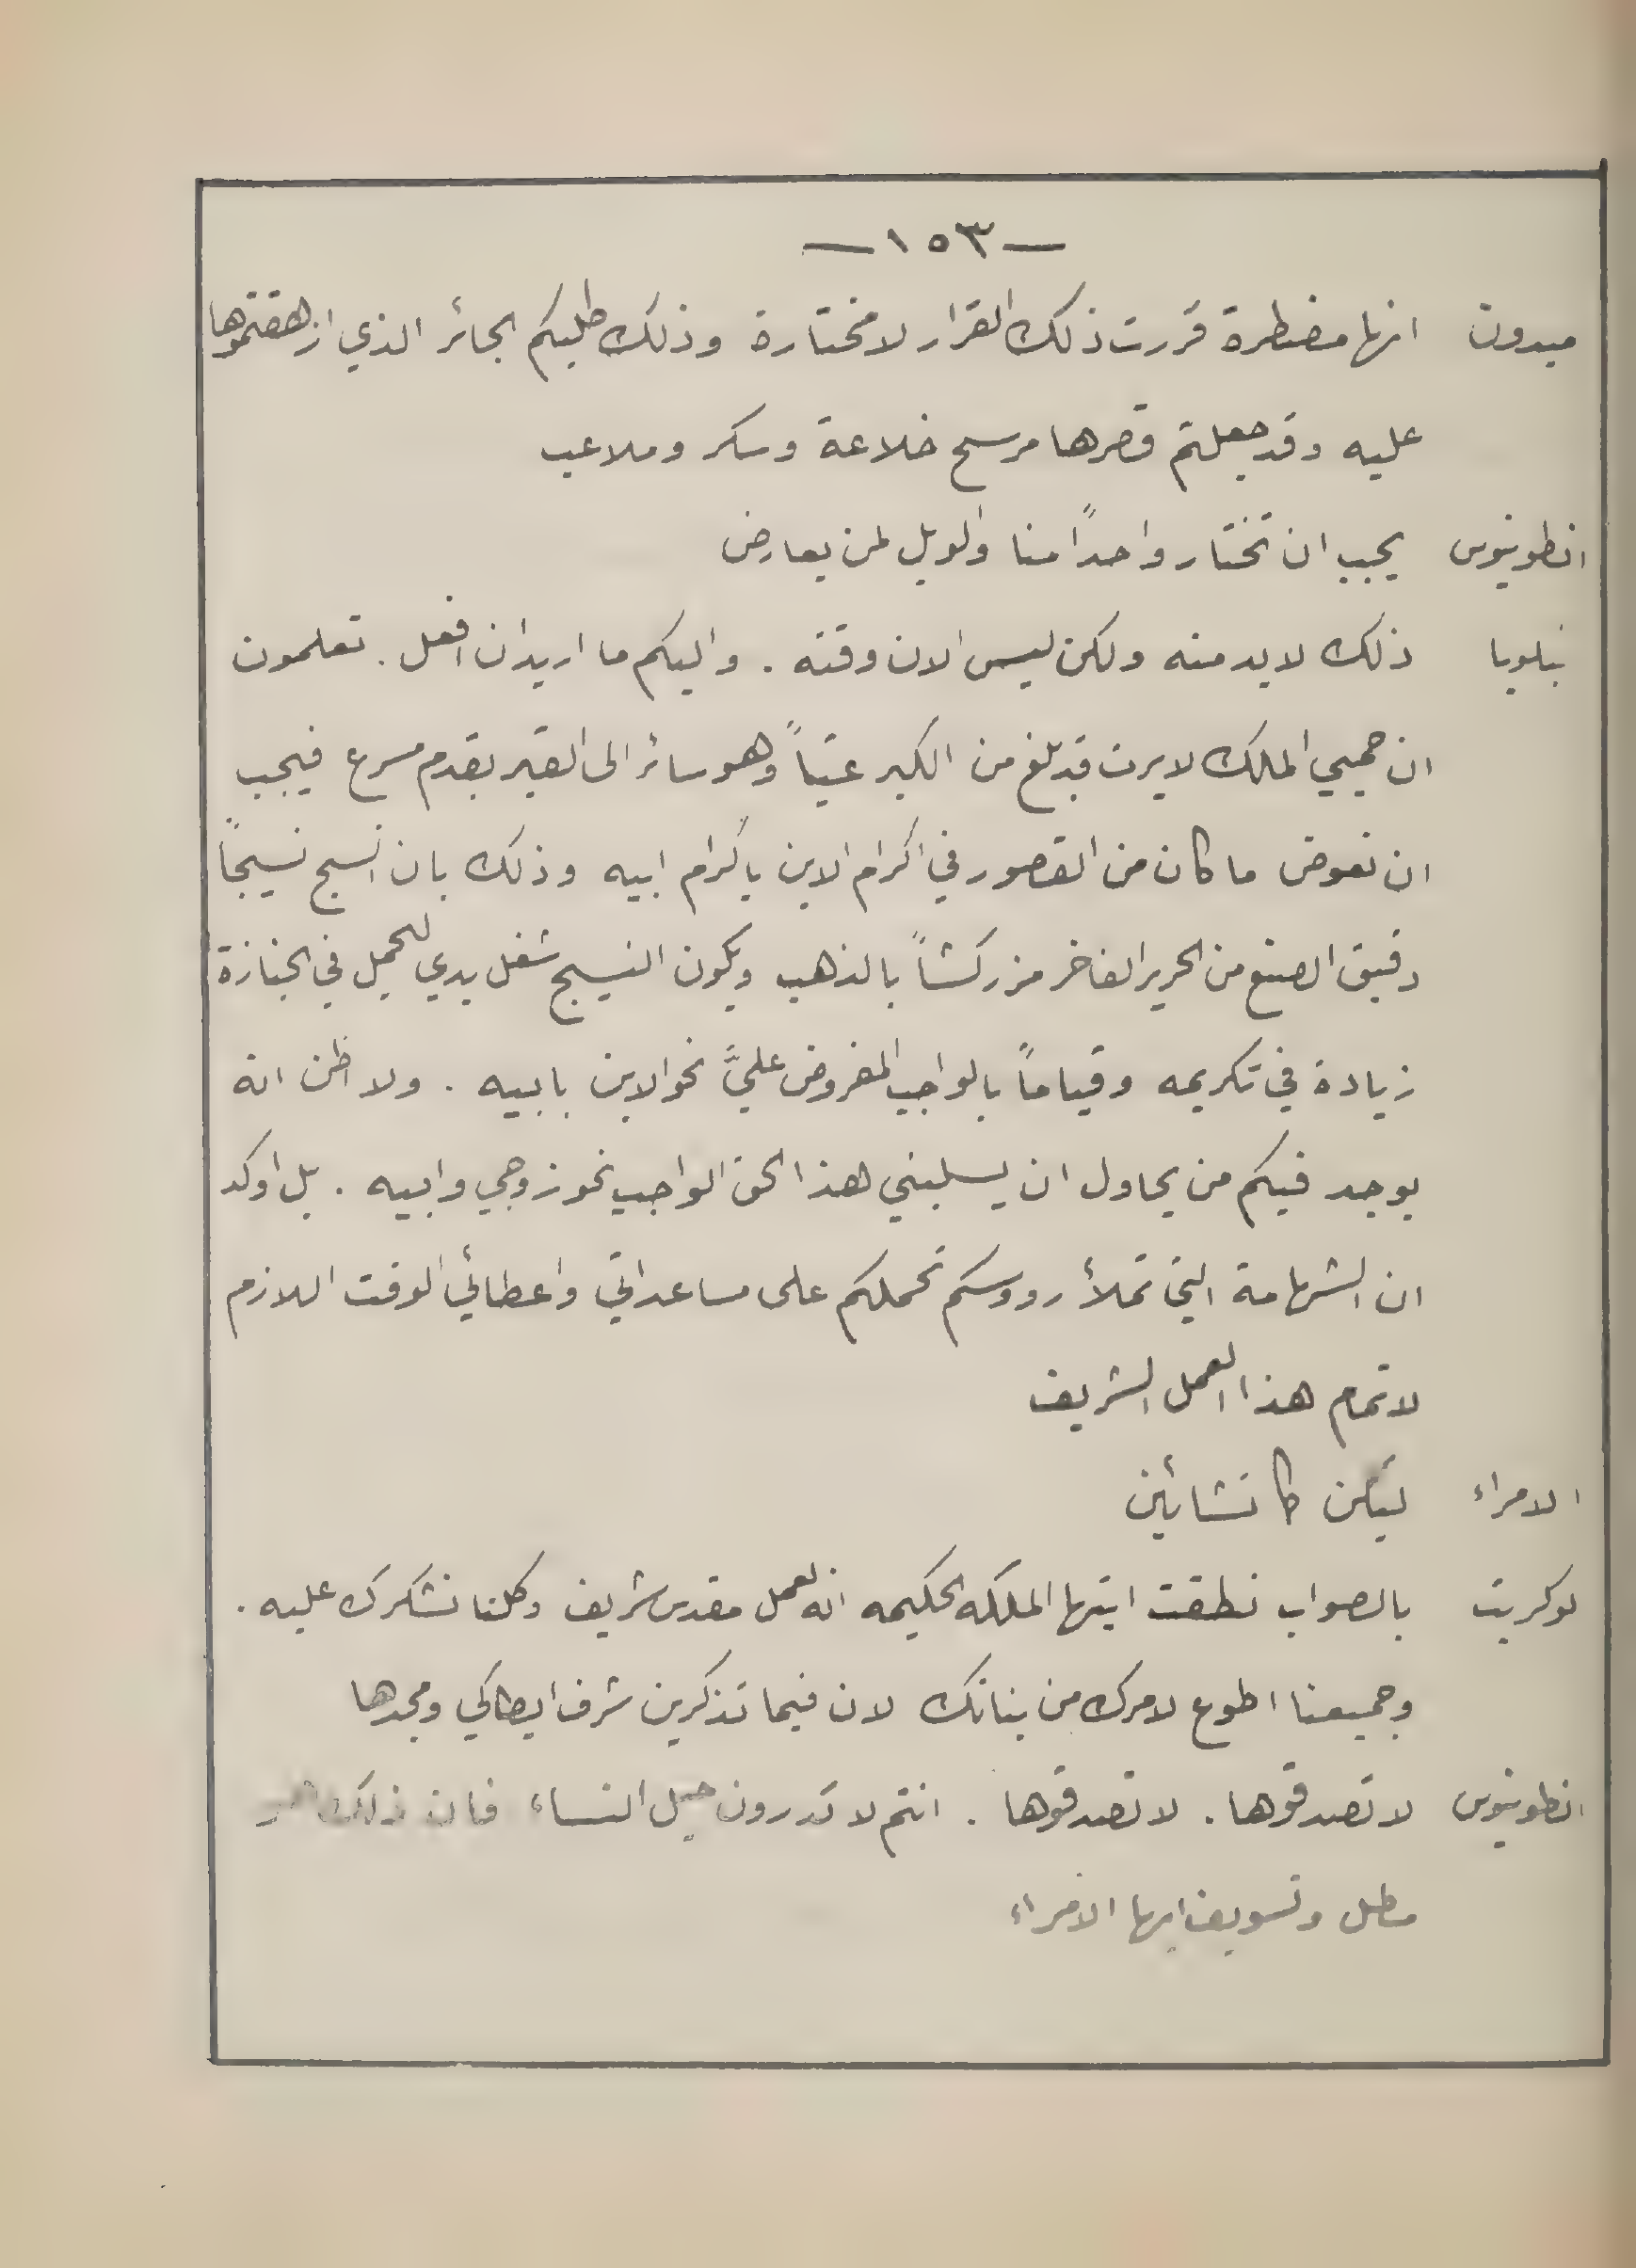 —١٥٣—
ميدون انها مضطرة قررت ذلك القرار لا مختارة وذلك طلبكم الجائر الذي ازهقتموها
عليه وقد جعلتم قصرها مرسح خلاعة وسكر وملاعب
انطونيوس يجب ان تختار واحداً منا والويل لمن يعارض
بنلوبا ذلك لا بد منه ولكن ليس الان وقته . واليكم ما اريد ان افعل . تعلمون
ان حميي الملك لايرت قد بلغ من الكبر عتياً وهو سائر الى القبر بقدم مسرع فيجب
ان نعوض ما كان من القصور في اكرام الابن باكرام ابيه وذلك بان انسج نسيجاً
دقيق الصنع من الحرير الفاخر مزركشاً بالذهب ويكون النسيج شغل يدي لحمل في الجنازة
زيادة في تكريمه وقياماً بالواجب المفروض عليَّ نحو الابن بابيه . ولا اظن انه
يوجد فيكم من يحاول ان يسلبني هذا الحق الواجب نحو زوجي وابيه . بل اوكد
ان الشهامة التي تملأ رووسكم تحملكم على مساعدتي واعطائي الوقت اللازم
لاتمام هذا العمل الشريف
الامراء ليكن كما تشائين
لوكريت بالصواب نطقت ايتها الملكه الحكيمه انه لعمل مقدس شريف وكلنا نشكرك عليه .
وجميعنا اطوع لامرك من بنانك لان فيما تذكرين شرف ايطاكي ومجدها
انطونيوس لا تصدقوها . لا تصدقوها . انتم لا تدرون حيل النساء فان ذلك
مطل وتسويف ايها الامراء